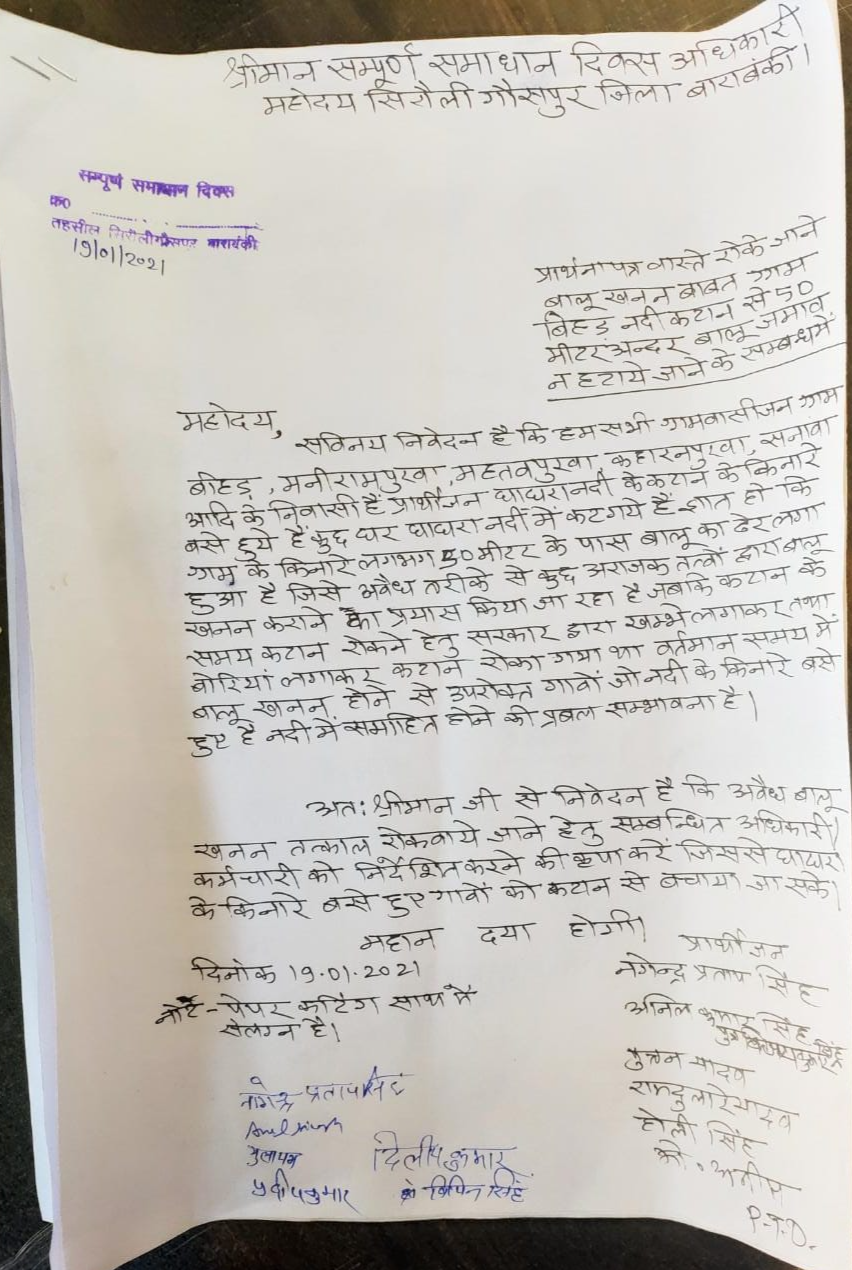 श्रीमान सम्पूर्ण समाधान दिवस अधिकारी
महोदय सिरौली गौसपुर जिला बाराबंकी।
सम्पूर्ण समाधान दिवस
क0
तहसील सिरौलीगौसपुर बाराबंकी
19/01/2021
प्रार्थनापत्र वास्ते रोके जाने
बालू खनन बाबत ग्राम
बिहड़ नदी कटान से 50
मीटर अन्दर बालू जमाव
न हटाये जाने के सम्बन्ध में
महोदय,
सविनय निवेदन है कि हम सभी ग्रामवासीजन ग्राम
बीहड़, मनीरामपुरवा, महतवपुरवा, कहारनपुरवा, सनावा
आदि के निवासी हैं प्रार्थीजन घाघरा नदी के कटान के किनारे
बसे हुये हैं कुछ घर घाघरा नदी में कट गये हैं ज्ञात हो कि
ग्राम के किनारे लगभग 50 मीटर के पास बालू का ढेर लगा
हुआ है जिसे अवैध तरीके से कुछ अराजक तत्वों द्वारा बालू
खनन कराने का प्रयास किया जा रहा है जबकि कटान के
समय कटान रोकने हेतु सरकार द्वारा खम्भे लगाकर तथा
बोरियां लगाकर कटान रोका गया था वर्तमान समय में
बालू खनन होने से उपरोक्त गावों जो नदी के किनारे बसे
हुए है नदी में समाहित होने की प्रबल सम्भावना है।
अतः श्रीमान जी से निवेदन है कि अवैध बालू
खनन तत्काल रोकवाये जाने हेतु सम्बन्धित अधिकारी/
कर्मचारी को निर्देशित करने की कृपा करें जिससे घाघरा
के किनारे बसे हुए गावों को कटान से बचाया जा सके।
महान दया होगी।
दिनांक 19.01.2021
नोट - पेपर कटिंग साथ में
संलग्न है।
प्रार्थीजन
नगेन्द्र प्रताप सिंह
अनिल कुमार सिंह
यादव
रामदुलारे यादव
होली सिंह
P.T.O.
नगेन्द्र प्रताप सिंह
दिलीप कुमार
प्रदीप कुमार
विपिन सिंह